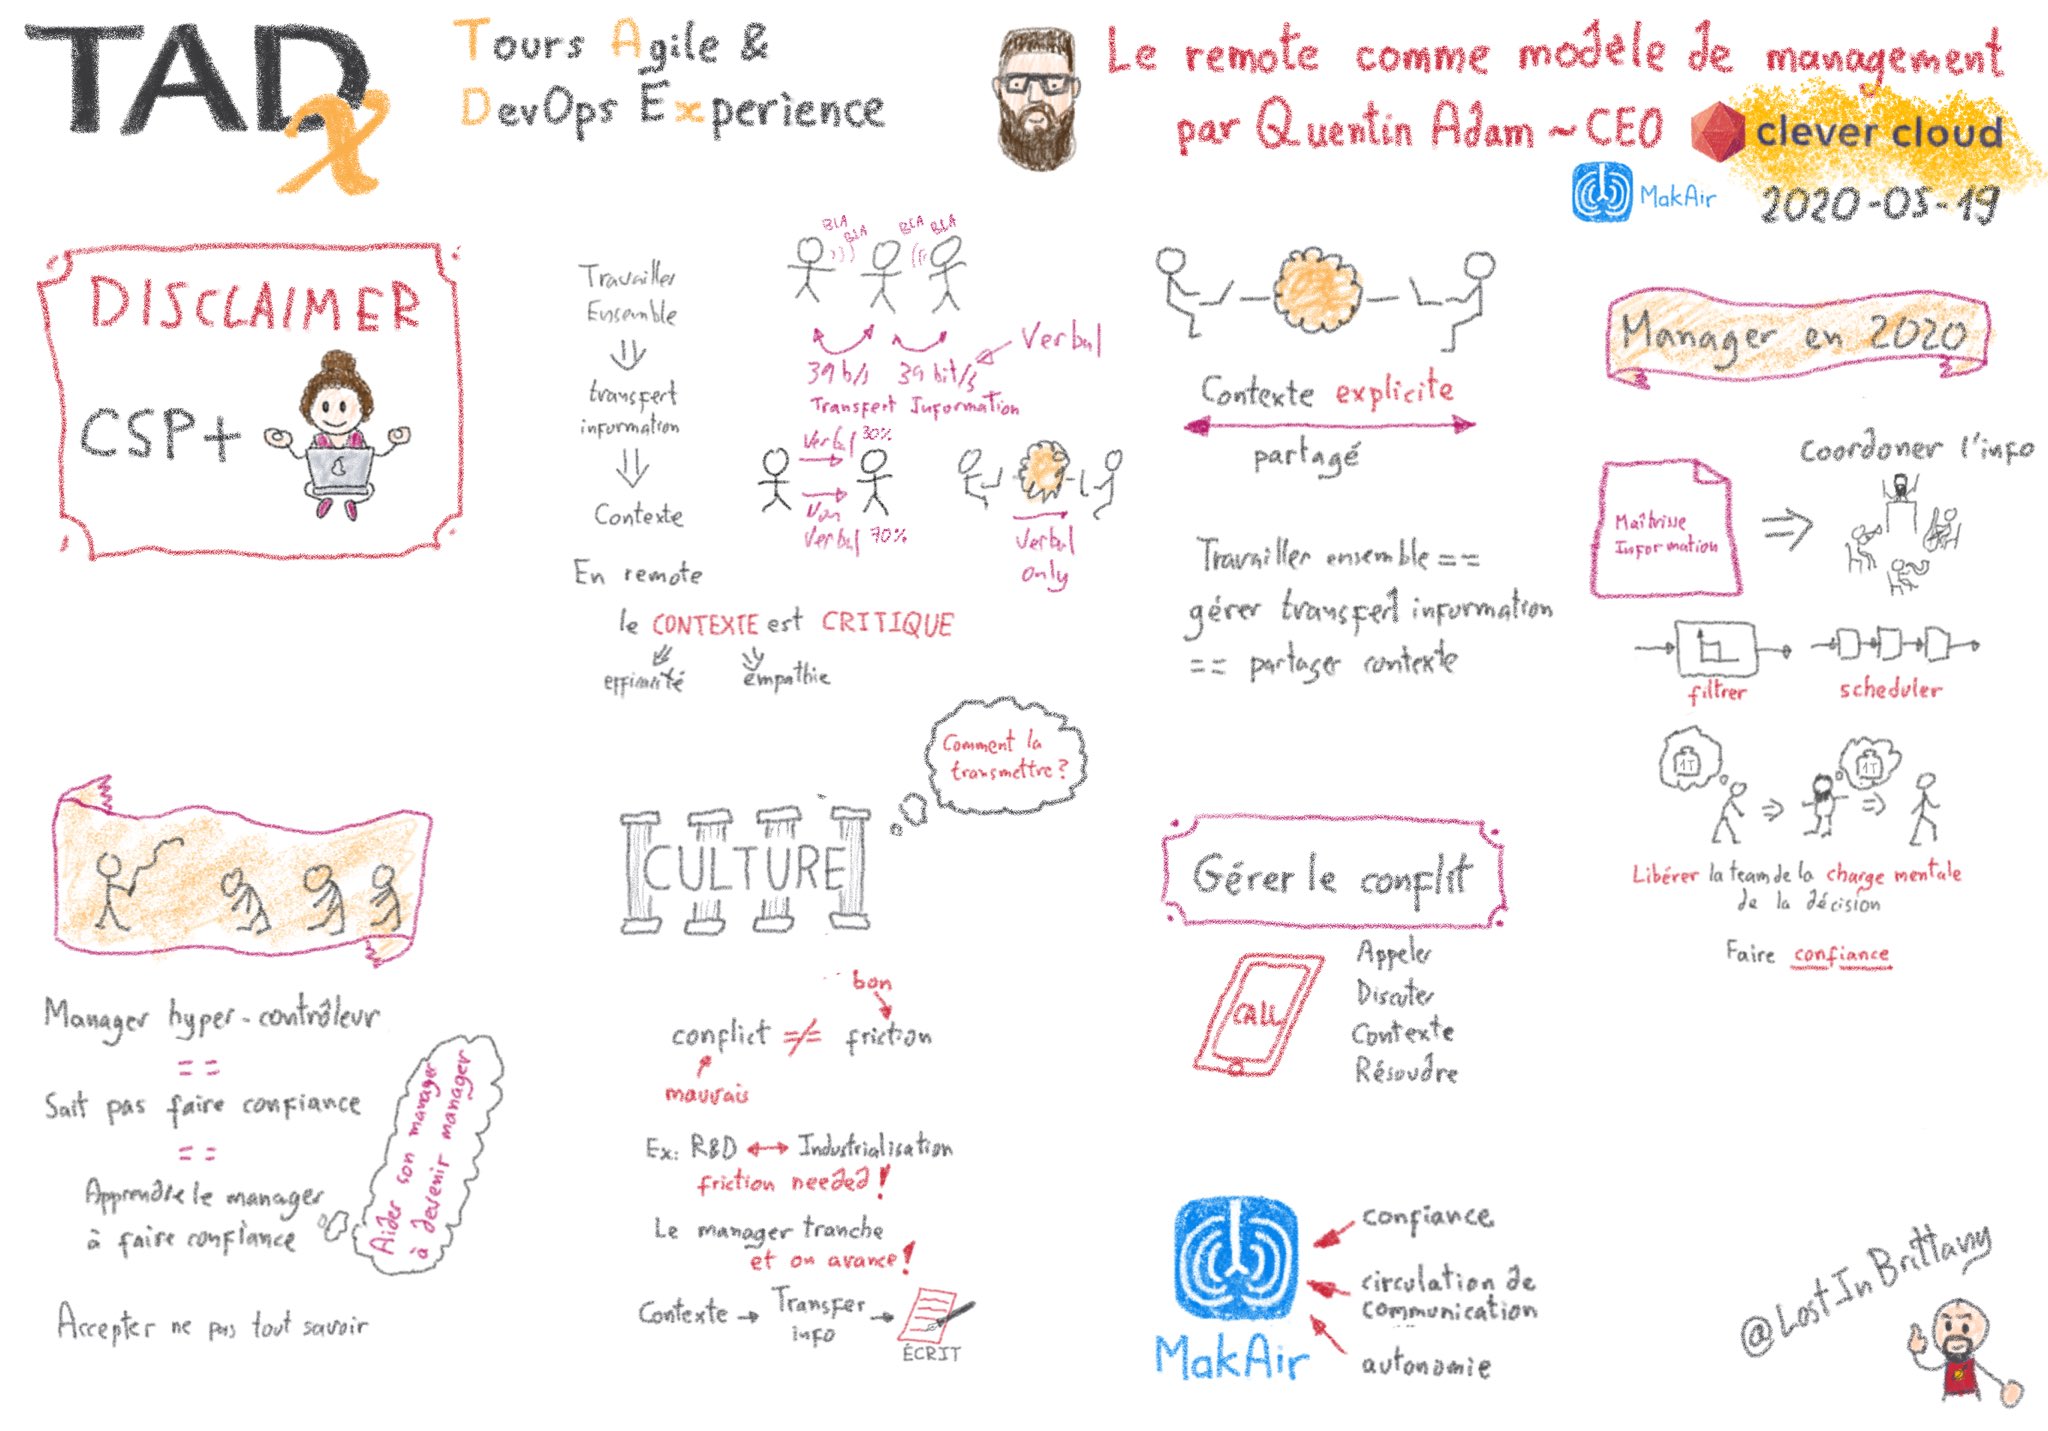 TADx
Tours Agile &
DevOps Experience
Le remote comme modèle de management
par Quentin Adam ~ CEO clever cloud
MakAir
2020-05-19
DISCLAIMER
CSP+
Travailler
Ensemble
⇓
transfert
information
⇓
Contexte
BLA
BLA
BLA
BLA
39 b/s
39 bit/s
Verbal
Transfert Information
Verbal 30%
Non
Verbal 70%
Verbal
only
En remote
le CONTEXTE est CRITIQUE
efficacité
empathie
Contexte explicite
partagé
Travailler ensemble ==
gérer transfert information
== partager contexte
Manager en 2020
Maîtrise
Information
Coordoner l'info
filtrer
scheduler
1T
1T
Libérer la team de la charge mentale
de la décision
Faire confiance
Manager hyper-contrôleur
==
Sait pas faire confiance
==
Apprendre le manager
à faire confiance
Aider son manager
à devenir manager
Accepter ne pas tout savoir
CULTURE
Comment la
transmettre?
bon
conflict =/= friction
mauvais
Ex: R&D ↔ Industrialisation
friction needed!
Le manager tranche
et on avance!
Contexte → Transfer
info →
ÉCRIT
Gérer le conflit
CALL
Appeler
Discuter
Contexte
Résoudre
MakAir
confiance
circulation de
communication
autonomie
@LostInBrittany